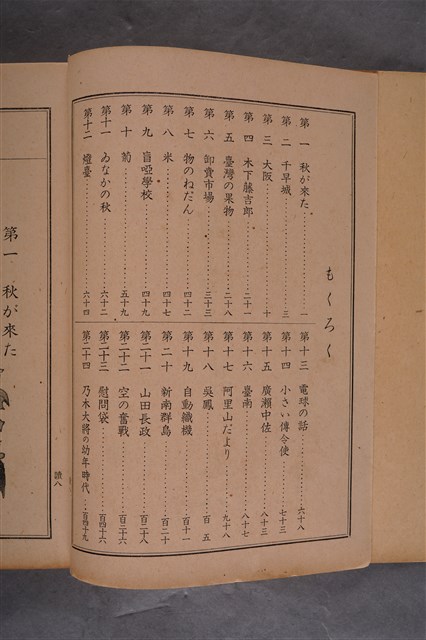 もくろく
第一 秋が來た 一
第二 千早城 三
第三 大阪 十
第四 木下藤吉郎 二十一
第五 臺灣の果物 二十八
第六 卸賣市場 三十三
第七 物のねだん 四十二
第八 米 四十七
第九 盲啞學校 四十九
第十 菊 五十九
第十一 ゐなかの秋 六十二
第十二 燈臺 六十四
第十三 電球の話 六十八
第十四 小さい傳令使 七十三
第十五 廣瀬中佐 八十三
第十六 臺南 八十七
第十七 阿里山だより 九十八
第十八 吳鳳 百五
第十九 自動織機 百十一
第二十 新南群島 百二十
第二十一 山田長政 百二十八
第二十二 空の奮戰 百三十六
第二十三 慰問袋 百四十六
第二十四 乃木大將の幼年時代 百四十九
第一 秋が來た
讀八